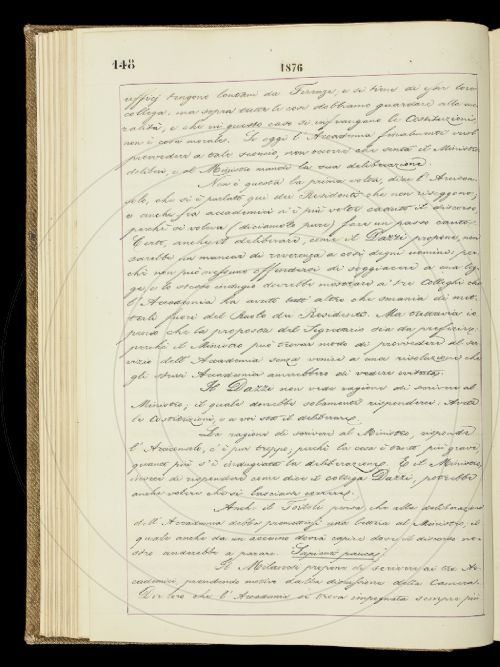 148
1876
ufficj tengono lontani da Firenze, e si trae di esser loro
collega, ma sopra tutte le cose dobbiamo guardare alla mo
ralità, e che in questo caso si infrangano le Costituzioni,
non è cosa morale. Se oggi l'Accademia finalmente vuol
provvedere a tale sconcio, non occorre che senta il Ministro,
deliberi, e al Ministro mandi la sua deliberazione.
Non è questa la prima volta, dice l'Arcicon-
solo, che si è parlato qui dei Residenti che non risiedono;
e anche fra accademici si è più volte caduto il discorso
perchè si voleva (diciamolo pure) fare un passo cauto.
Certo, anche il deliberare, come il Dazzi propone, non
sarebbe un mancar di reverenza a così degni uomini; per-
chè non può nessuno offendersi di soggiacere a una leg-
ge, e lo stesso indugio dovrebbe mostrare a tre Colleghi che
l'Accademia ha avuto tutt'altro che smania di met-
terli fuori del Ruolo dei Residenti. Ma tuttavia io
penso che la proposta del Segretario sia da preferirsi;
perchè il Ministro può trovar modo di provvedere al ser-
vizio dell'Accademia senza venire a una risoluzione che
gli stessi Accademici avrebbero di vedere evitata.
Il Dazzi non vede ragione di scrivere al
Ministro; il quale dovrebbe solamente rispondere: Avete
le Costituzioni, e a voi sta il deliberare.
La ragione di scrivere al Ministro, risponde
l'Arciconsolo, c'è pur troppo; perchè la cosa è tanto più grave,
quanto più s'è indugiata la deliberazione. E il Ministro,
invece di rispondere come dice il collega Dazzi, potrebbe
anche volere che si lasciasse correre.
Anche il Tortoli pensa che alla deliberazione
dell'Accademia debba premettersi una lettera al Ministro, il
quale anche da un accenno dovrà capire dove il discorso no-
stro anderebbe a parare. Sapienti pauca;
Il Milanesi propone di scrivere ai tre Ac-
cademici, prendendo motivo dalla discussione della Camera.
Dir loro che l'Accademia si trova impegnata sempre più